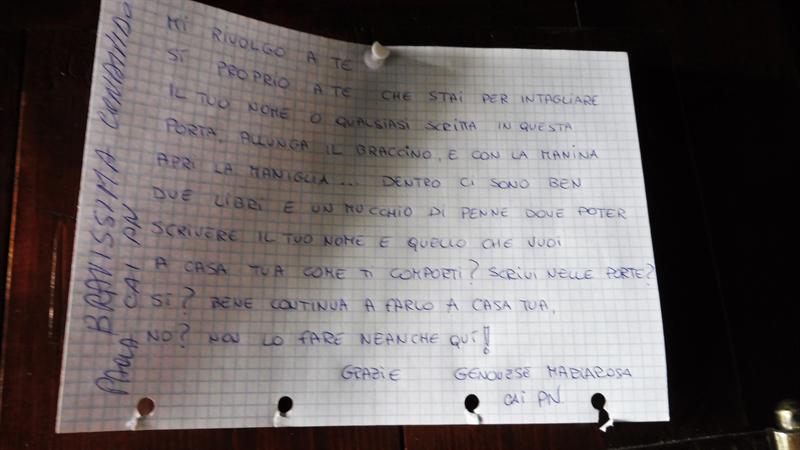 MI RIVOLGO A TE
SI PROPRIO A TE CHE STAI PER INTAGLIARE
IL TUO NOME O QUALSIASI SCRITTA IN QUESTA
PORTA, ALLUNGA IL BRACCINO, E CON LA MANINA
APRI LA MANIGLIA... DENTRO CI SONO BEN
DUE LIBRI E UN MUCCHIO DI PENNE DOVE POTER
SCRIVERE IL TUO NOME E QUELLO CHE VUOI
A CASA TUA COME TI COMPORTI? SCRIVI NELLE PORTE?
SI? BENE CONTINUA A FARLO A CASA TUA,
NO? NON LO FARE NEANCHE QUI!
GRAZIE GENOVESE MARIAROSA
CAI PN
BRAVISSIMA CONDIVIDO
PAOLA CAI PN